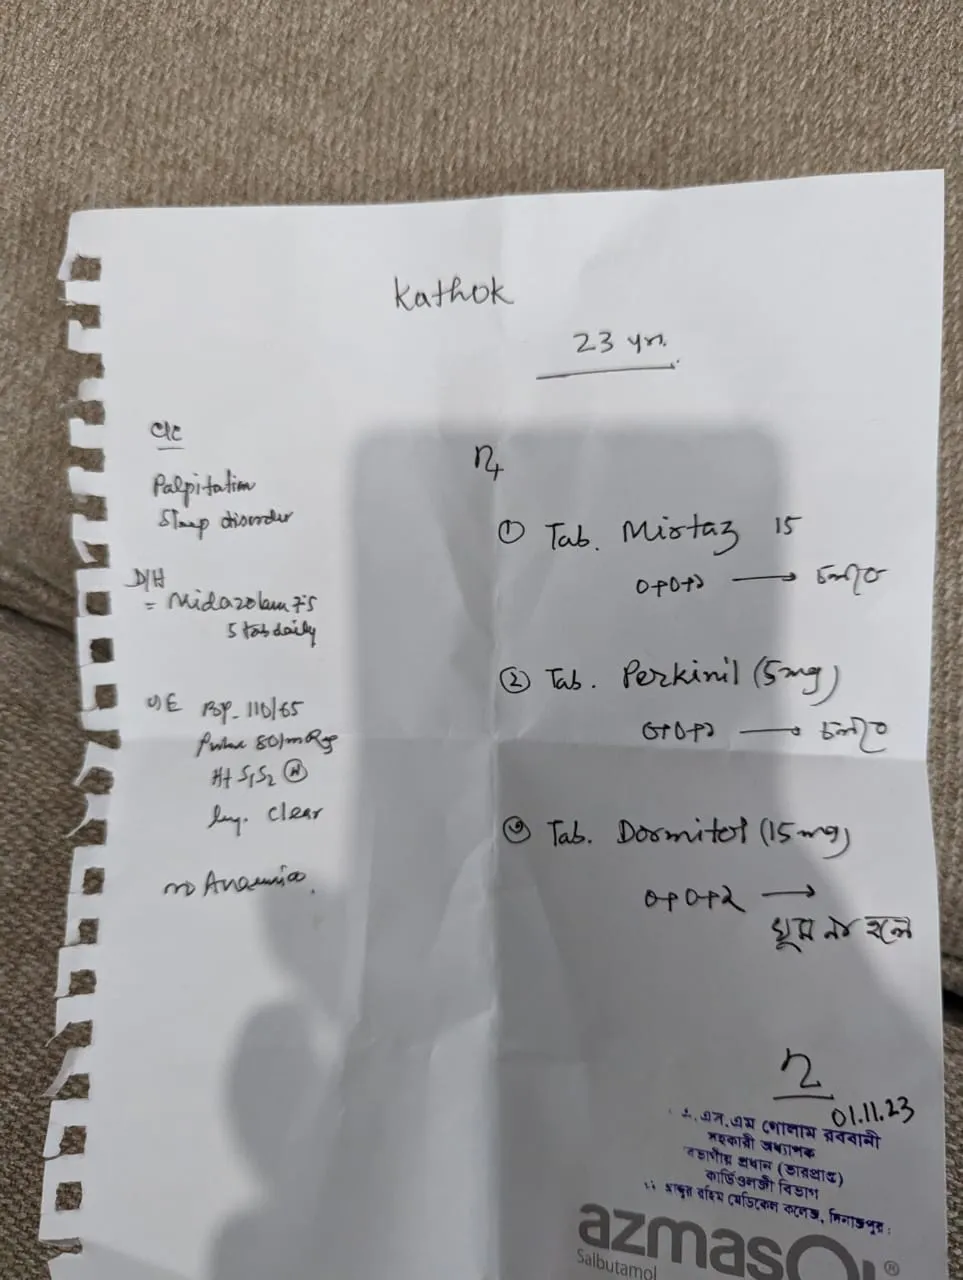 Kathok
23 yrs.
C/C
Palpitation
Sleep disorder
D/H
= Midazolam 7.5
5 tab daily
O/E BP- 110/65
Pulse 80/m Reg
Ht S1S2 (N)
lung. clear
no Anaemia.
Rx
① Tab. Mirtaz 15
০+০+১ → চলবে
② Tab. Perkinil (5mg)
০+০+১ → চলবে
③ Tab. Dormitol (15mg)
০+০+২ →
ঘুম না হলে
01.11.23
এস.এম গোলাম রববানী
সহকারী অধ্যাপক
বিভাগীয় প্রধান (ভারপ্রাপ্ত)
কার্ডিওলজী বিভাগ
আব্দুর রহিম মেডিকেল কলেজ, দিনাজপুর।
azmasol®
Salbutamol